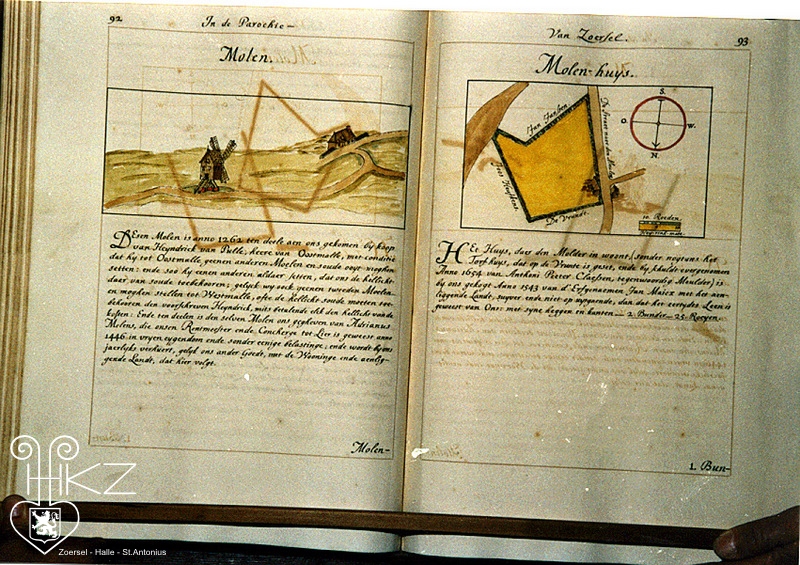 92
In de Parochie-
Molen.
DEsen Molen is anno 1262 ten deele aen ons gekomen by koop
van Heyndrick van Pulle, heere van Oostmalle, met conditie
dat hy tot Oostmalle geenen anderen Moelen en soude ooyt vermoghen
setten: ende soo hy eenen anderen aldaer setten, dat ons de helleckt
daer van soude toebehooren; gelyck wy oock geenen tweeden Moelen
en moghen stellen tot Westmalle, ofte de helleckt soude moeten toe-
behooren den voorschreven Heyndrick, mits betalende elck den helleckt van de
kosten: Ende ten deelen is den selven Molen ons gegheven van Adrianus
Molens, die onsen Rentmeester ende Conchierge tot Lier is geweest anno
1446. in vryen eygendom ende sonder eenige belastinge; ende wordt by ons
jaerlyks verhuert, gelyk ons ander Goedt, met de Wooninge ende aenlig-
gende Landt, dat hier volgt.
Molen-
Van Zoersel.
93
Molen-huys.
Jan Jansen
De straet naer den Molen
Joos
De Vrunte.
S.
O.
W.
N.
10. Roeden.
HEt Huys, daer den Molder in woont, sonder nogtans het
Torfhuys, dat op de Vrunte is geset, ende by schult overgenomen
Anno 1654 van Anthoni Peeter Claessen, tegenwoordig Meulder; is
by ons gekogt Anno 1543 van d' Erfgenamen Jan Maicx met het aen-
liggende Landt, suyver ende niet op uytgaende, dan dat het eertyds Leen is
geweest van Ons: met syne heggen en kanten — 2. Bunder — 25. Roeyen.
1. Bun-
HKZ
Zoersel - Halle - St.Antonius